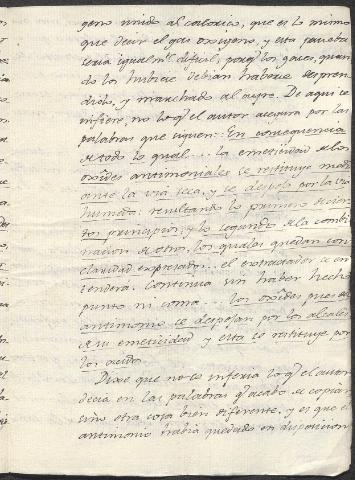 geno unido al calorico, que es lo mismo
que decir el gas oxigeno, y esta prueba
seria igualm.te dificil, porq.e los gases, quan
do los hubiese debian haberse despren
dido, y marchado al ayre. De aqui se
infiere, no lo q.e el autor asegura por las
palabras que siguen: En consequencia
de todo lo qual... la emeticidad de los
oxides antimoniales se restituye medi
ante la via seca, y se despoja por la via
humeda: resultando lo primero de
tos principios, y lo segundo de la combi
nacion de otros, los quales quedan con
claridad expresados... el extractador se en
tenderá. Continua sin haber hecho
punto ni coma... los oxides pues de
antimonio se despojan por los alcalis
de su emeticidad y esta se restituye por
los acidos.
Dixe que no se inferia lo q.e el autor
decia en las palabras q.e acabo de copiar
sino otra cosa bien diferente, y es que el
antimonio habia quedado en disposicion